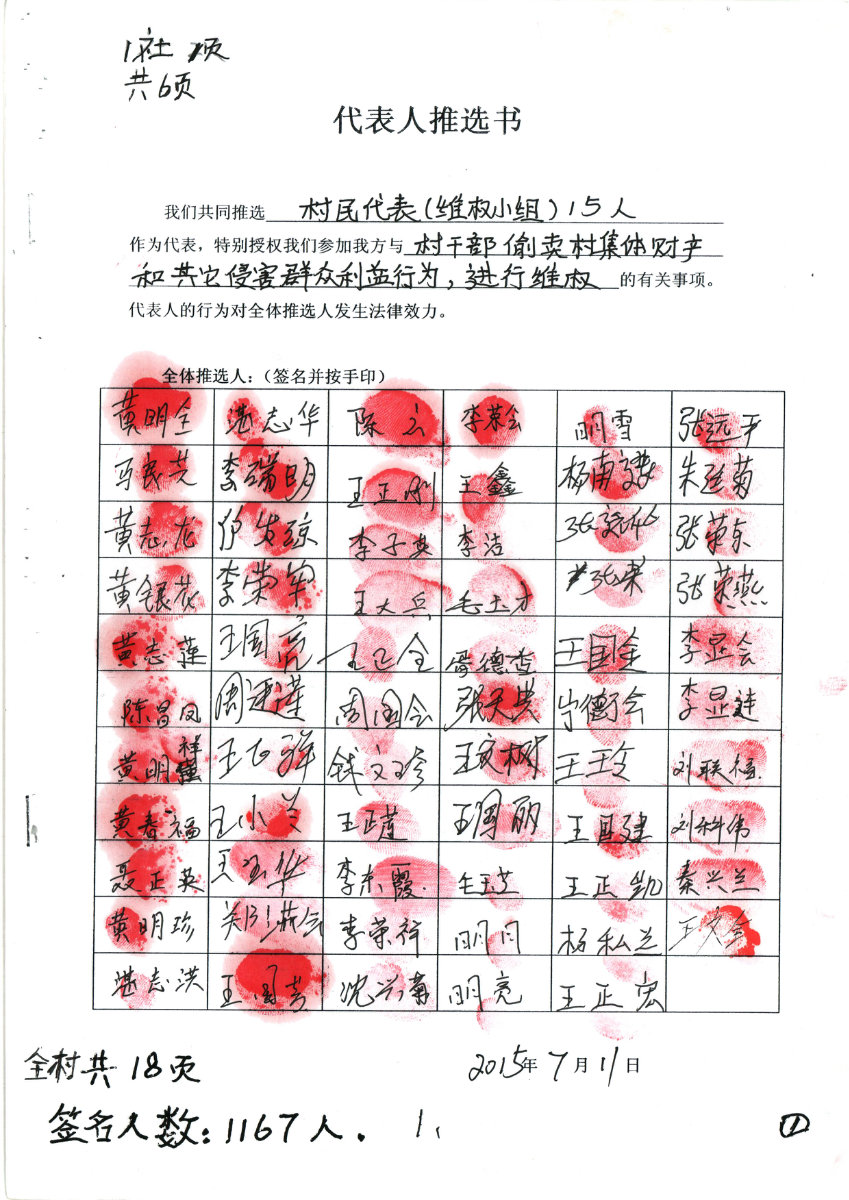 1社 1页
共6页
代表人推选书
我们共同推选 村民代表(维权小组)15人
作为代表，特别授权我们参加我方与 村干部偷卖村集体财产
和其它侵害群众利益行为，进行维权 的有关事项。
代表人的行为对全体推选人发生法律效力。
全体推选人：（签名并按手印）
黄明全 湛志华 陈 李荣会 明雪 张远平
马民芝 李瑞明 王正刚 王鑫 朱莲菊
黄志龙 李子英 李洁 张荣东
黄银花 李荣军 王大兵 毛玉才 张荣燕
黄志莲 王国亮 王正全 王国全 李显会
陈昌凤 周廷莲 周国会 张天发 宁德会 李显莲
黄明祥 钱文珍 王文树 王玉 刘联福
黄春福 王小兰 王正莲 王周丽 王国建 刘科伟
聂正英 李东霞 王正凯 秦兴兰
黄明珍 李荣祥 明月 杨私兰 王文全
湛志洪 沈兴菊 明亮 王正宏
全村共18页 2015年7月11日
签名人数：1167人. 1、 ①